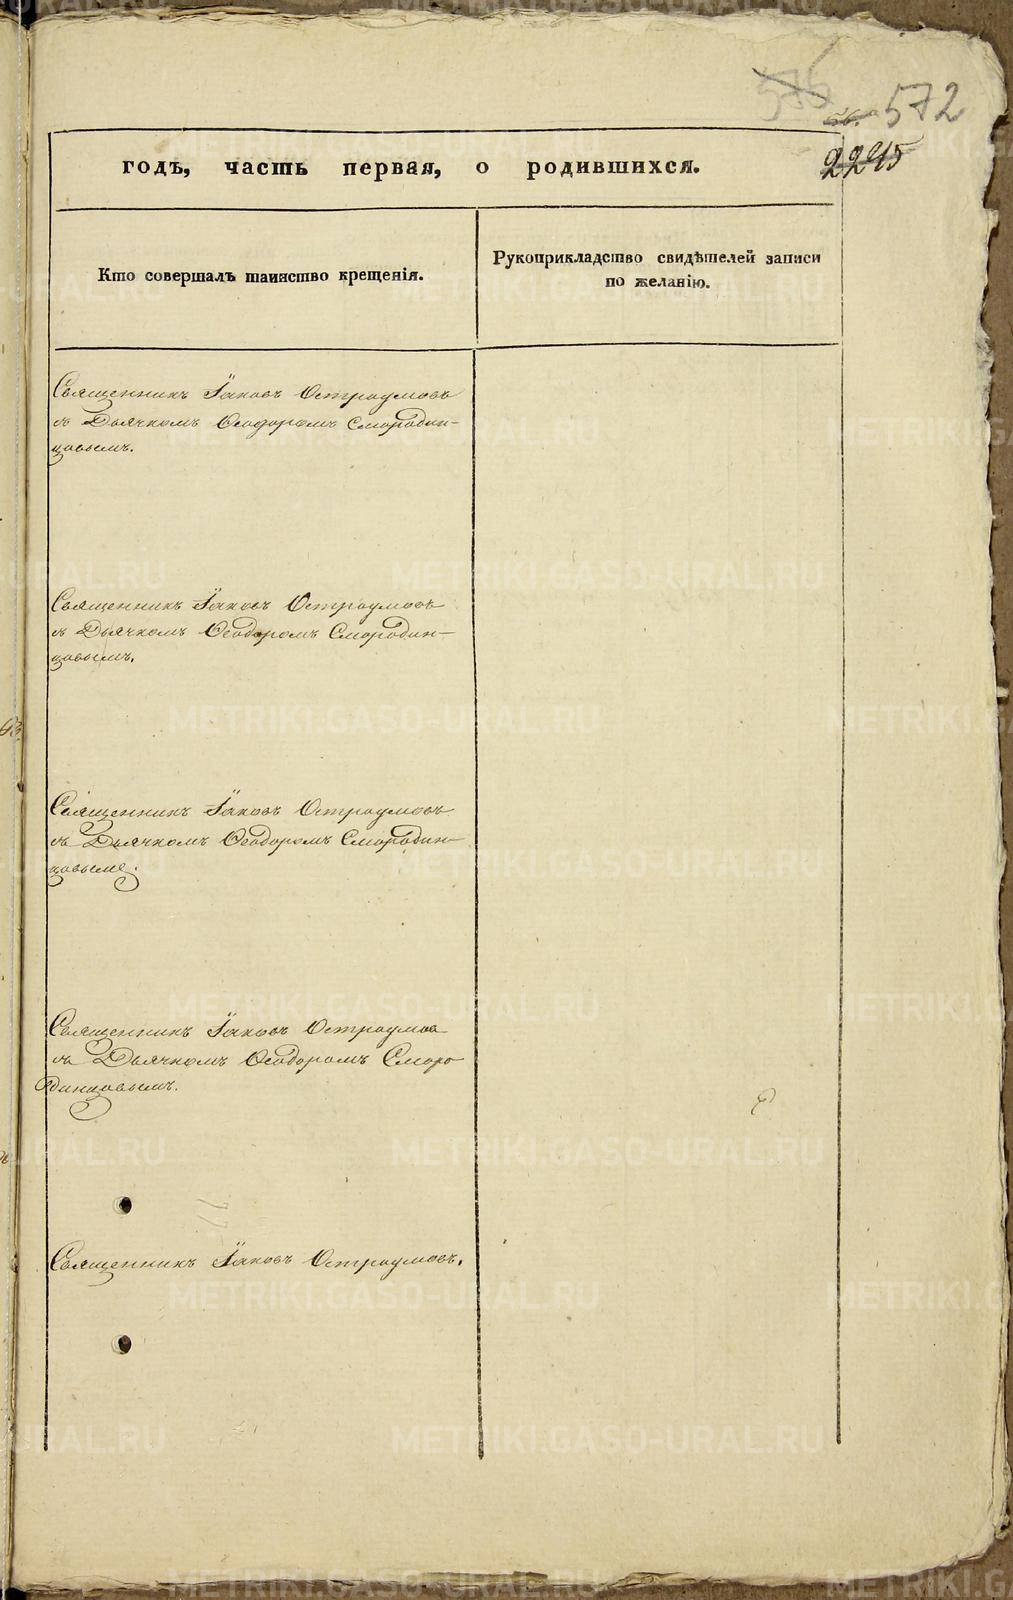 572
2295
годъ, часть первая, о родившихся.
Кто совершалъ таинство крещенія.
Рукоприкладство свидѣтелей записи
по желанію.
Священникъ Іаковъ Остроумовъ
съ Дьячкомъ Ѳеодоромъ Смородин-
цовымъ.
Священникъ Іаковъ Остроумовъ
съ Дьячкомъ Ѳеодоромъ Смородин-
цовымъ.
Священникъ Іаковъ Остроумовъ
съ Дьячкомъ Ѳеодоромъ Смородин-
цовымъ.
Священникъ Іаковъ Остроумов
съ Дьячкомъ Ѳеодоромъ Сморо
динцовымъ.
Священникъ Іаковъ Остроумовъ.
METRIKI.GASO-URAL.RU